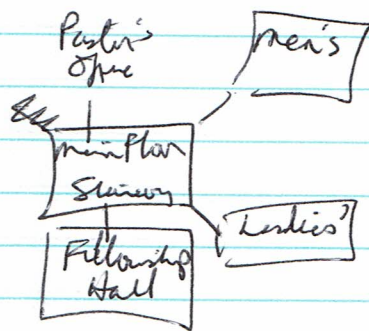 Pastor's
Office
Men's
Main Floor
Stairway
Ladies'
Fellowship
Hall